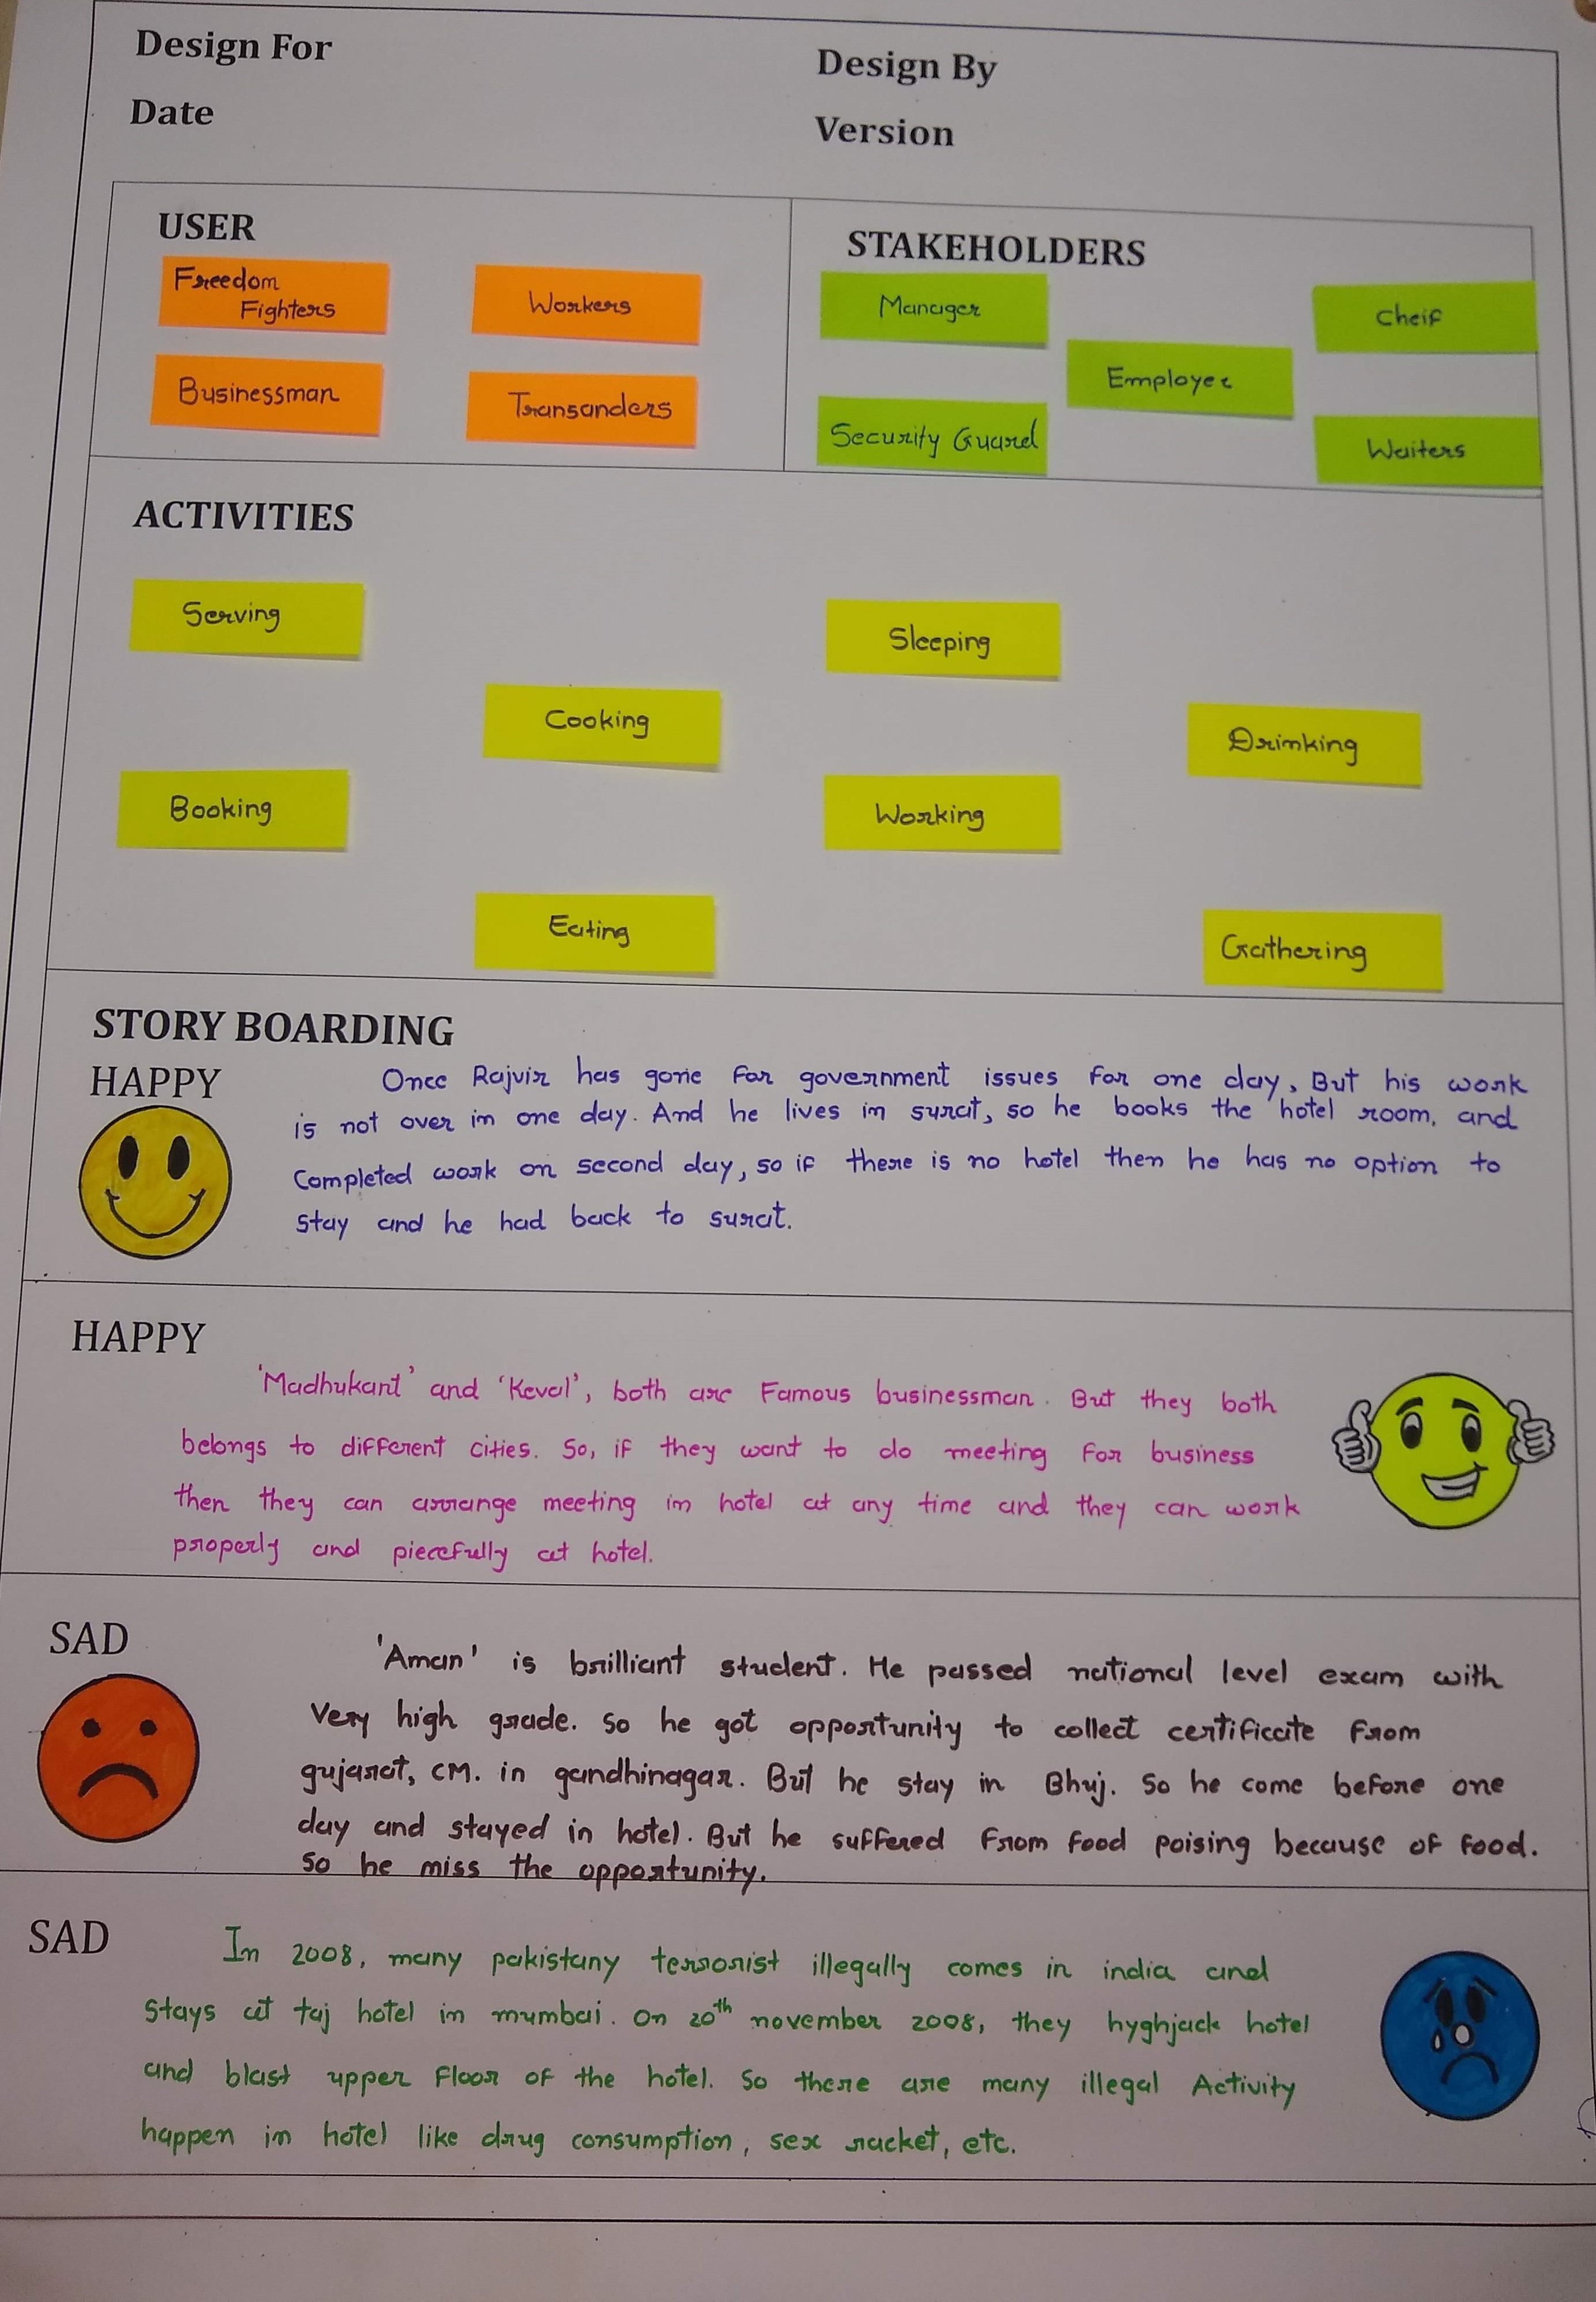 Design For
Design By
Date
Version
USER
Freedom
Fighters
Workers
Businessman
Transanders
STAKEHOLDERS
Manager
Cheif
Employee
Security Guard
Waiters
ACTIVITIES
Serving
Sleeping
Cooking
Drinking
Booking
Working
Eating
Gathering
STORY BOARDING
HAPPY
Once Rajvir has gone for government issues for one day, But his work
is not over in one day. And he lives in surat, so he books the hotel room, and
Completed work on second day, so if there is no hotel then he has no option to
stay and he had back to surat.
HAPPY
'Madhukant' and 'Keval', both are Famous businessman. But they both
belongs to different cities. So, if they want to do meeting for business
then they can arrange meeting in hotel at any time and they can work
properly and piecefully at hotel.
SAD
'Aman' is brilliant student. He passed national level exam with
Very high grade. so he got opportunity to collect certificate from
gujarat, CM. in gandhinagar. But he stay in Bhuj. So he come before one
day and stayed in hotel. But he suffered from food poising because of food.
So he miss the opportunity.
SAD
In 2008, many pakistany terrorist illegally comes in india and
Stays at taj hotel in mumbai. On 20th november 2008, they hyghjack hotel
and blast upper Floor of the hotel. So there are many illegal Activity
happen in hotel like drug consumption, sex racket, etc.